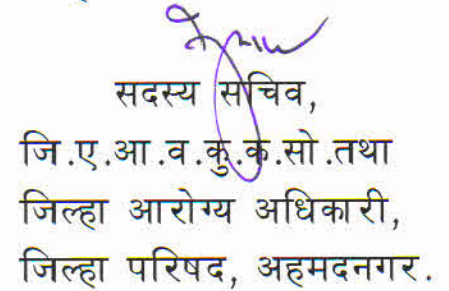 सदस्य सचिव,
जि.ए.आ.व.कु.क.सो.तथा
जिल्हा आरोग्य अधिकारी,
जिल्हा परिषद, अहमदनगर.